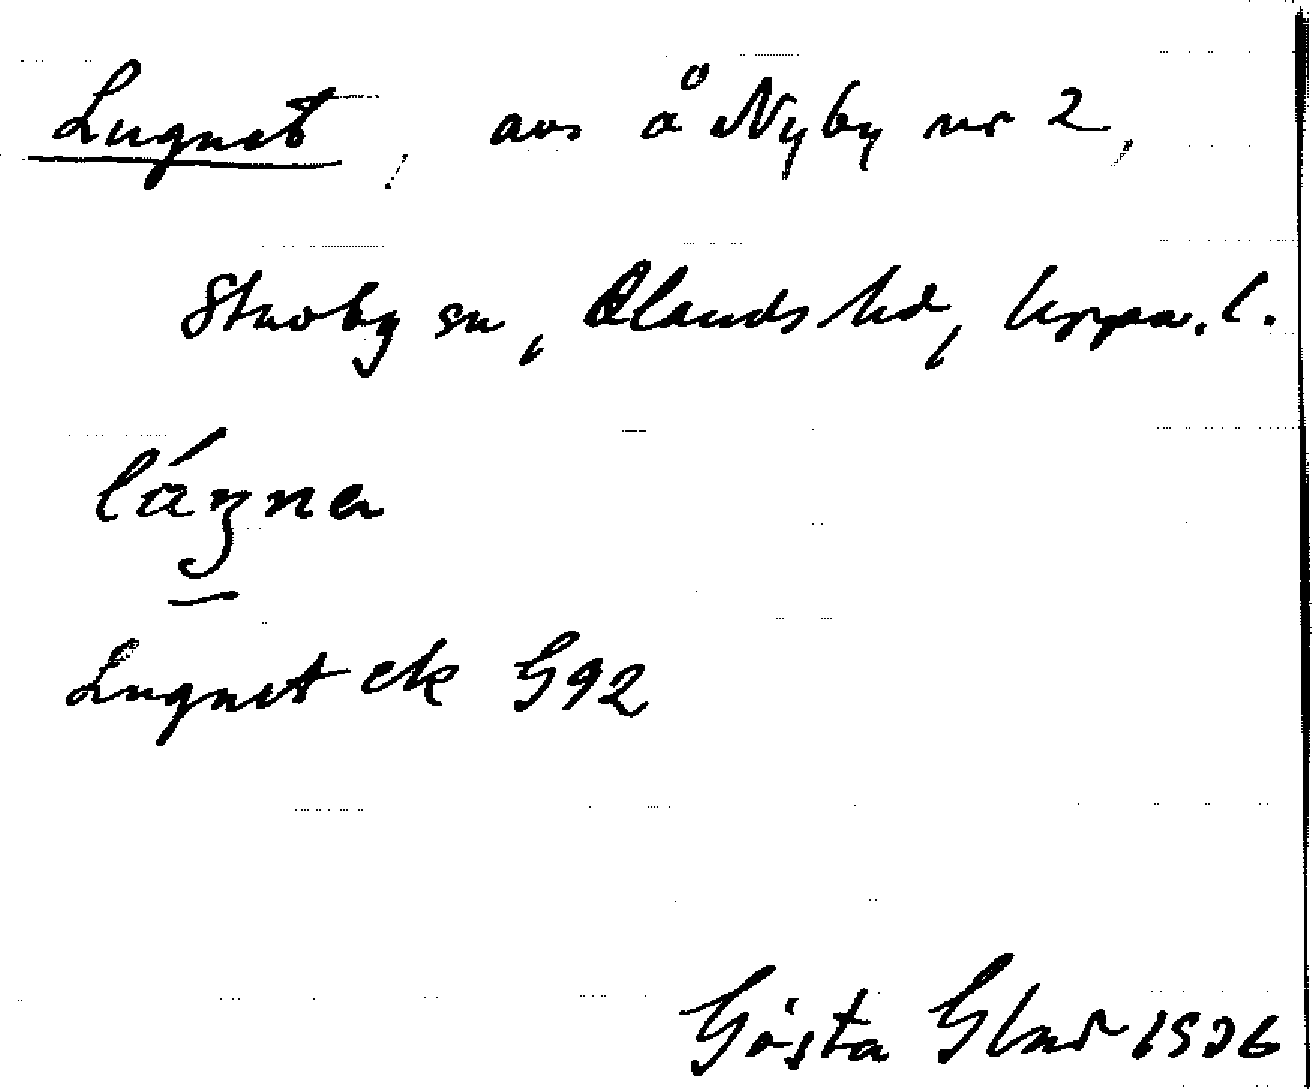 Lugnet, avs å Nyby nr 2,
Stavby sn, Olands hd, Uppsa. l.
láʒna
Lugnet ek G92
Gösta 1936